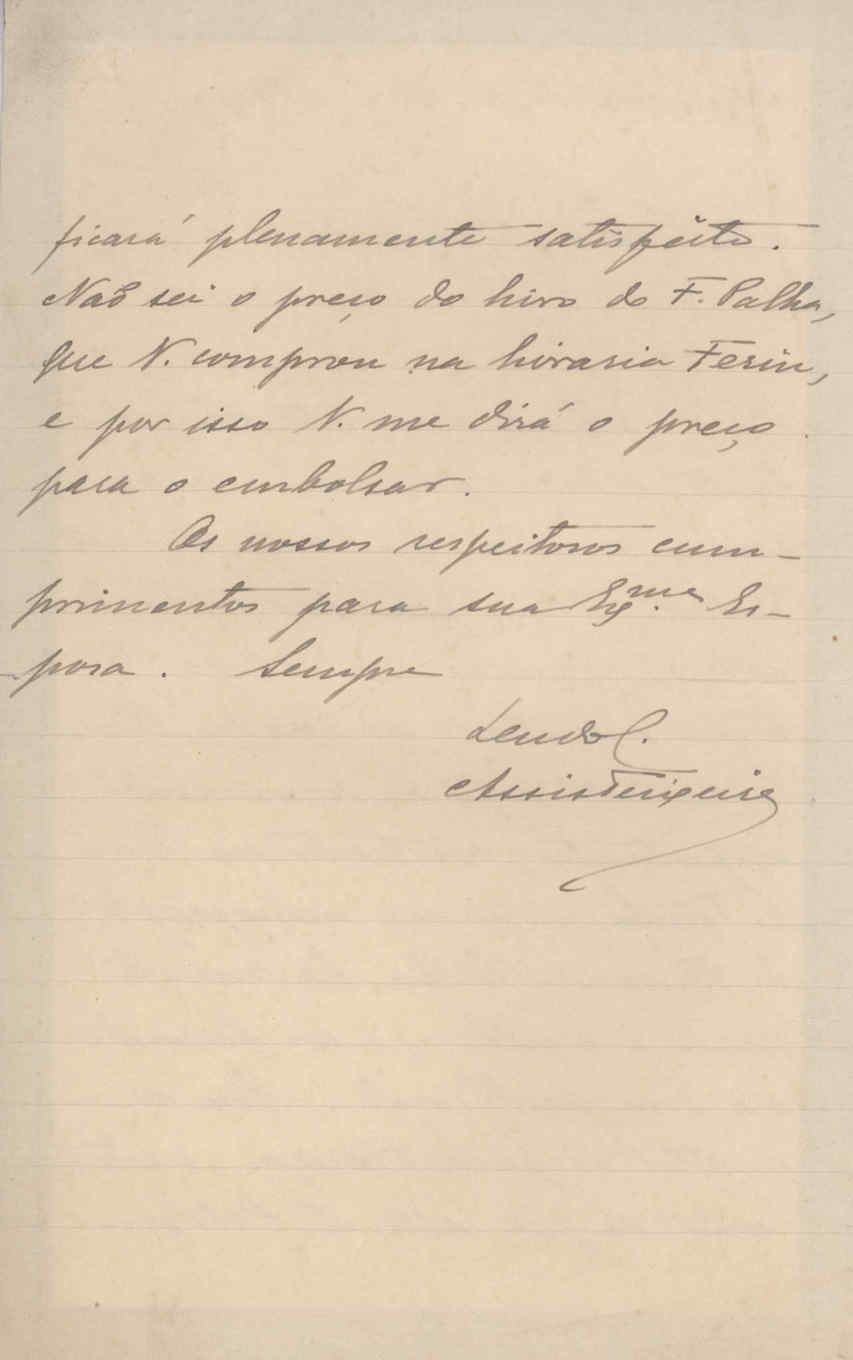 ficará plenamente satisfeito.
Não sei o preço do livro do F. Palha,
que V. comprou na livraria Ferin,
e por isso V. me dirá o preço
para o embolsar.
Os nossos respeitosos cum-
primentos para sua Exma. Es-
posa. Sempre
C.
Assis Teixeira